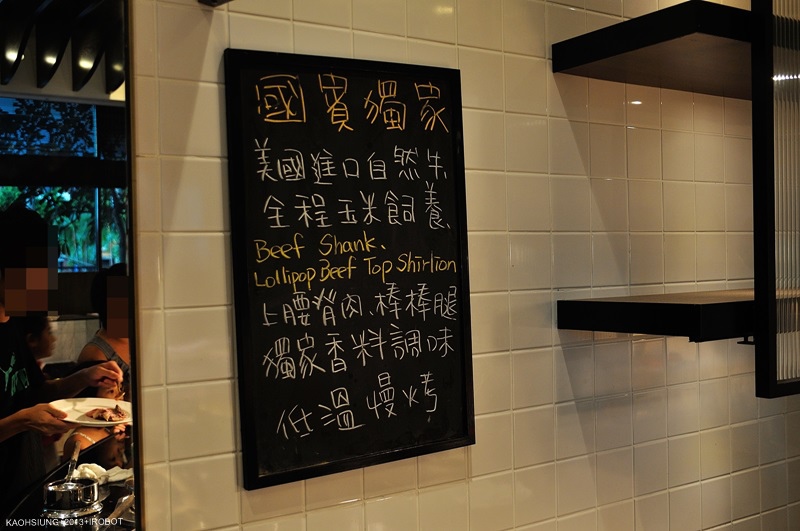 國賓獨家
美國進口自然牛
全程玉米飼養、
Beef Shank、
Lollipop Beef Top Shirlion
上腰脊肉、棒棒腿
獨家香料調味
低溫慢烤
KAOHSIUNG+2013+IROBOT